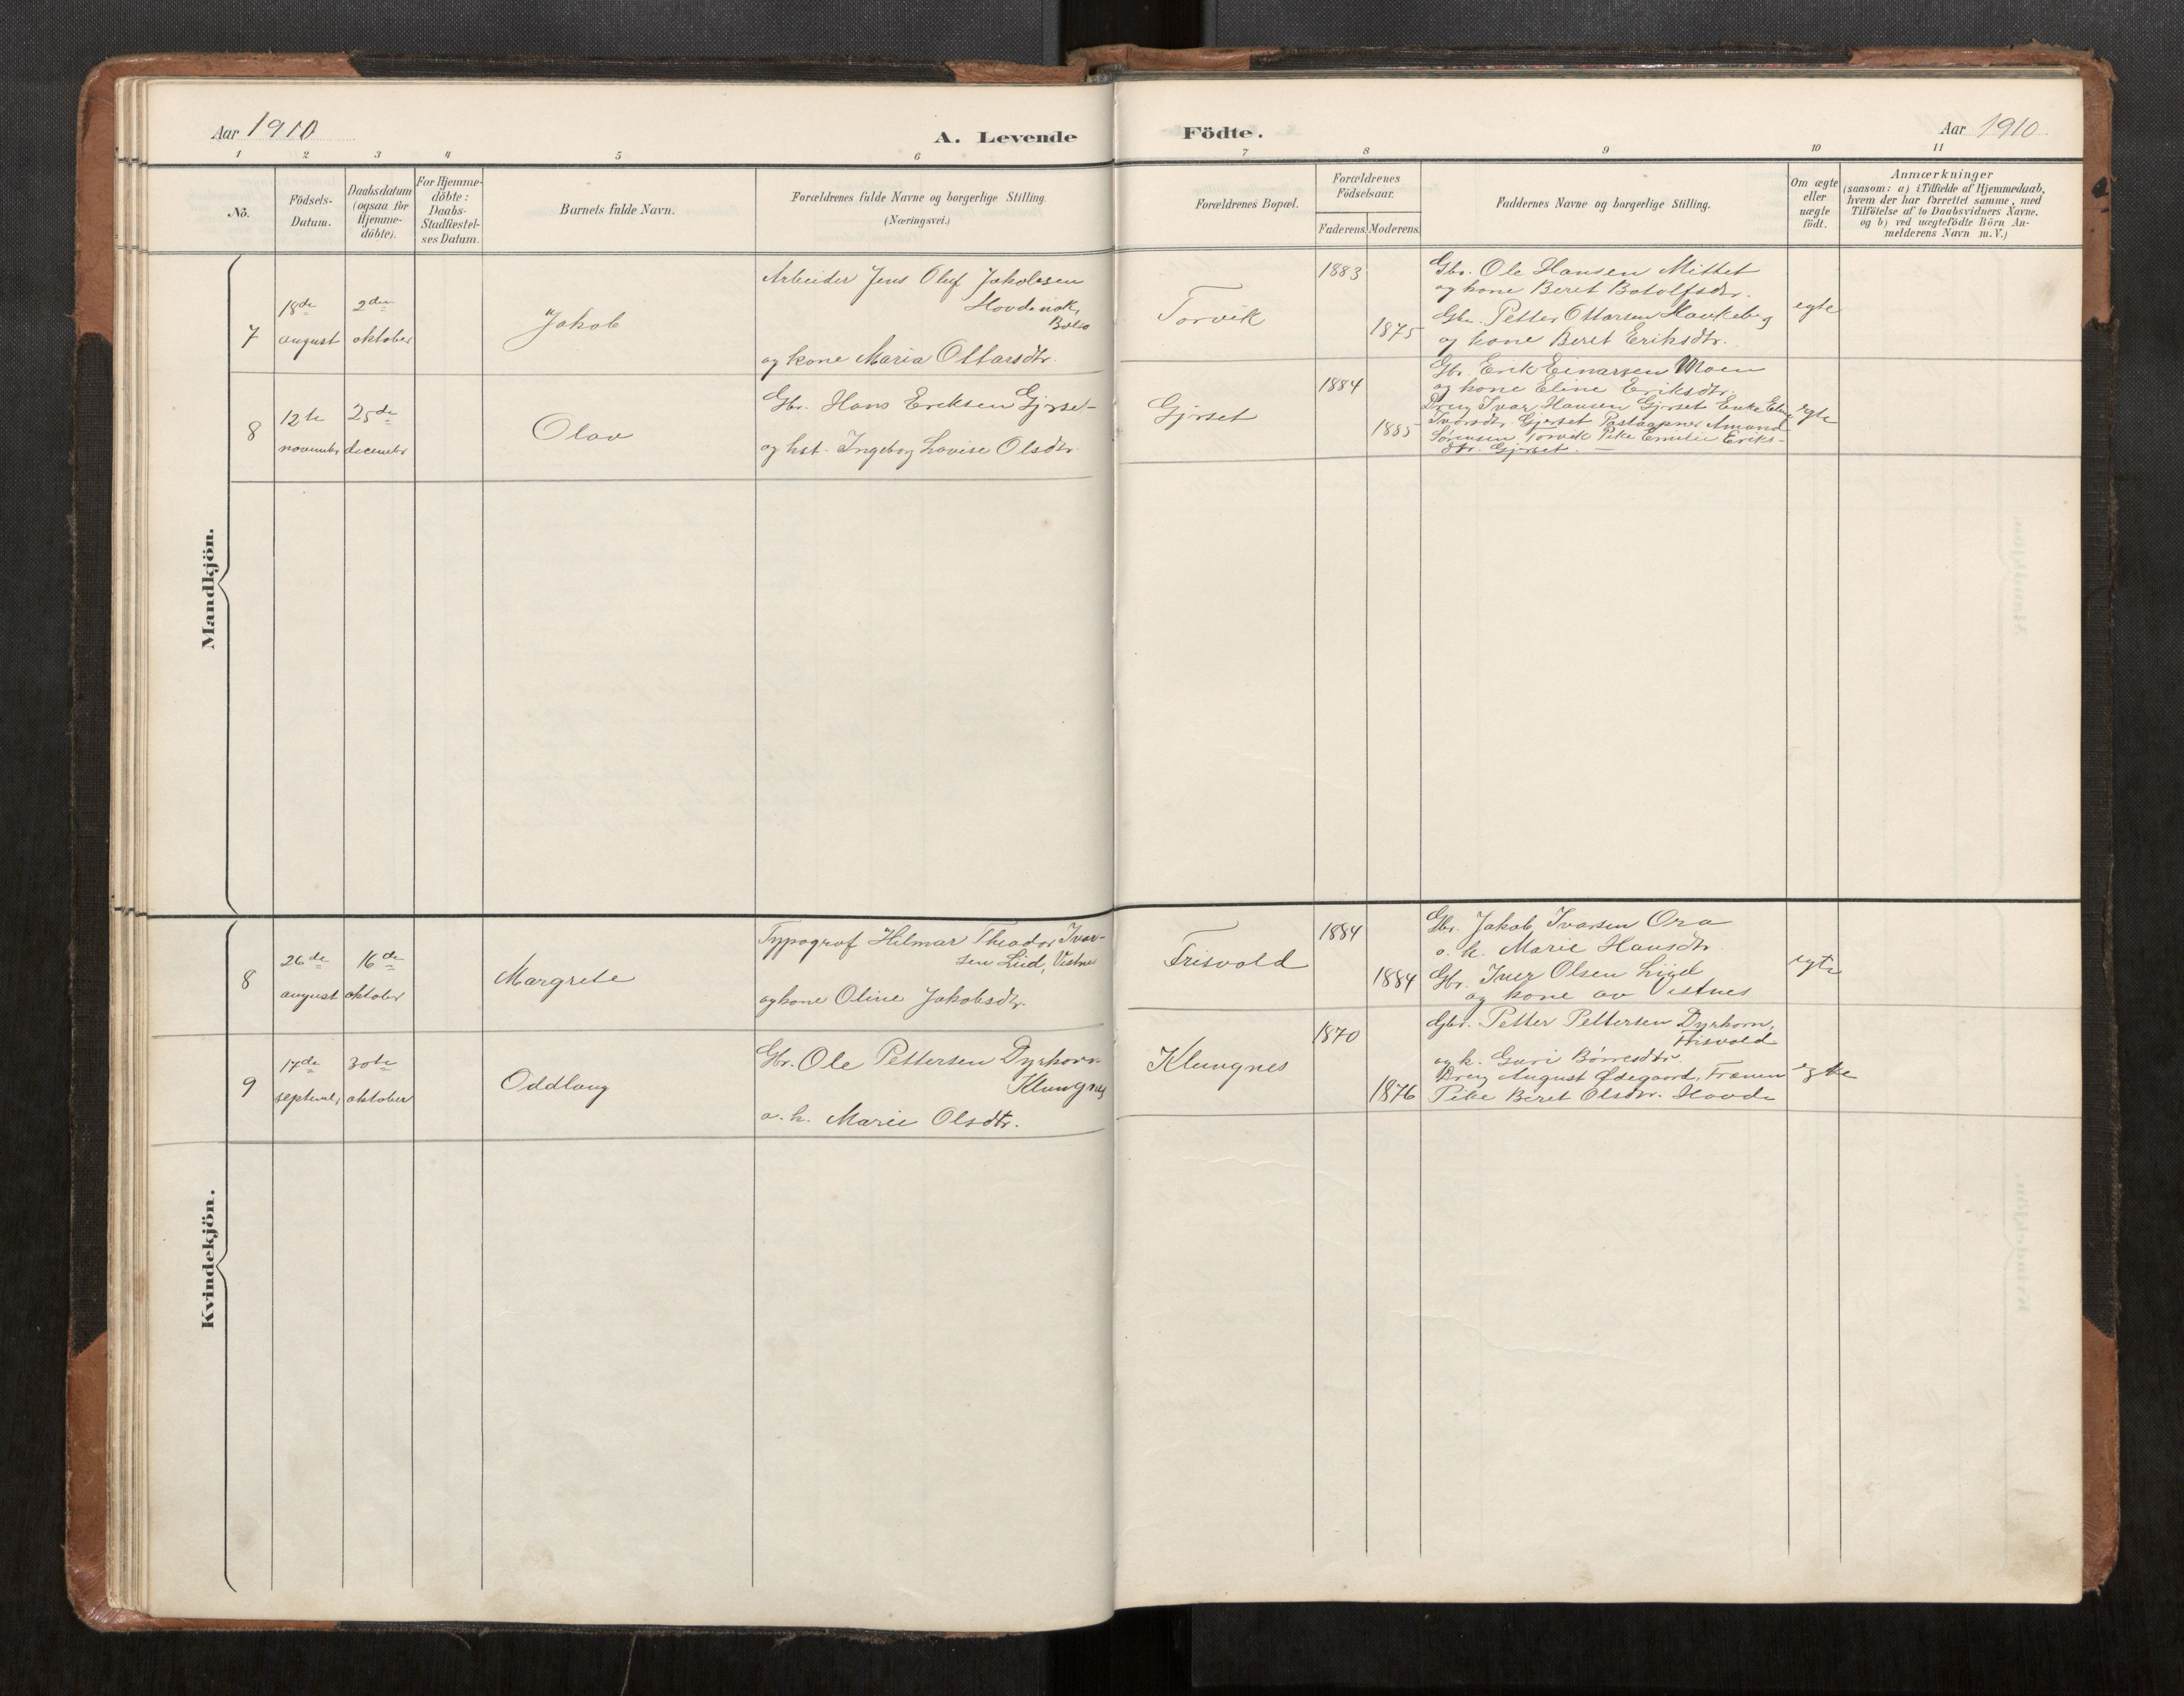 Aar 1910
A. Levende Födte.
Aar 1910
1 2 3 4 5 6 7 8 9 10 11
Nö.
Födsels-
Datum.
Daabsdatum
(ogsaa for
Hjemme-
döbte).
For Hjemme-
döbte:
Daabs-
Stadfæstel-
ses Datum.
Barnets fulde Navn.
Forældrenes fulde Navne og borgerlige Stilling.
(Næringsvei.)
Forældrenes Bopæl.
Forældrenes
Födselsaar.
Faderens. Moderens.
Faddernes Navne og borgerlige Stilling.
Om ægte
eller
uægte
födt.
Anmærkninger
(saasom: a) i Tilfælde af Hjemmedaab,
hvem der har forrettet samme, med
Tilföielse af to Daabsvidners Navne,
og b) ved uægtefödte Börn An-
melderens Navn m. V.)
Mandkjön.
7
18de
august
2den
oktober
Jakob
Arbeider Jens Oluf Jakobsen
Hovdenak,
Bolsø
og kone Maria Ottarsdtr.
Torvik
1883
1875
Gbr. Ole Hansen Mittet
og kone Beret Botolfsdtr.
Gbr. Petter Ottarsen Haukebøg
og kone Beret Eriksdtr.
egte
8
12te
novembr
25de
decembr
Olav
Gbr. Hans Eriksen Gjørset
og hst. Ingeborg Lovise Olsdtr.
Gjørset
1884
1885
Gbr. Erik Einarsen Moen
og kone Eline Eriksdtr.
Dreng Ivar Hansen Gjørset Enke Eline
Ivarsdtr. Gjørset Postaapner Amund
Sørensen Torvik Pike Emilie Eriks-
dtr. Gjørset. —
egte
Kvindekjön.
8
26de
august
16de
oktober
Margrete
Typograf Hilmar Theodor Ivar-
sen Lid, Vestnes
og kone Oline Jakobsdtr.
Frisvold
1884
1884
Gbr. Jakob Ivarsen Ora
o. k. Marie Hansdtr.
Gbr. Iver Olsen
og kone av Vestnes
egte
9
17de
septemb,
30te
oktober
Oddlaug
Gbr. Ole Pettersen Dyrhorn
Klungnes
o. k. Marie Olsdtr.
Klungnes
1870
1876
Gbr. Petter Pettersen Dyrhorn,
Frisvold
og k. Guri Børresdtr.
Dreng August Ødegaard, Frænen
Pike Beret Olsdtr. Hovde
egte